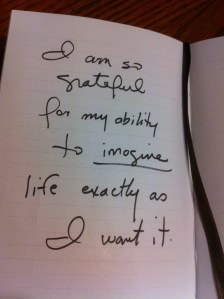 I am so
grateful
for my ability
to imagine
life exactly as
I want it.